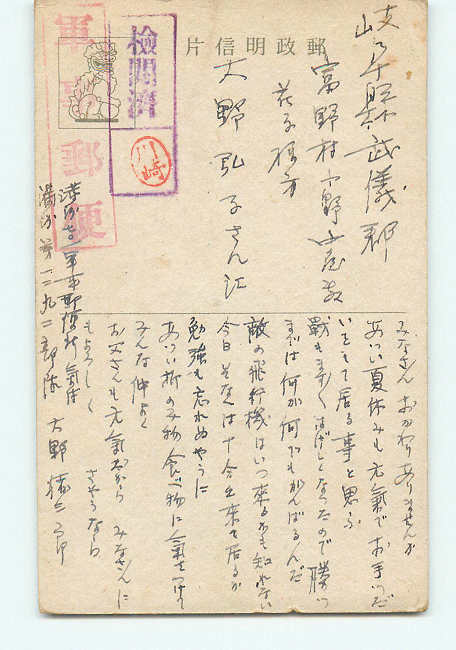 郵政明信片
軍事郵便
検閲済
川崎
岐阜縣武儀郡
富野村小野
花子様方
大野弘子さん江
みなさんおかわりありませんか
あつい夏休みも元氣でお手つだ
いをして居る事と思ふ
戰もますますはげしくなつたので勝つ
までは何が何でもがんばるんだ
敵の飛行機はいつ来るかも知れない
今日そちらは十合も来て居るが
勉強も忘れぬやうに
あつい折のみ物食べ物に氣をつけて
みんな仲よく
お父さんも元氣だから みなさんに
もよろしく さやうなら
軍事郵便所氣付
満洲第一二九二部隊 大野